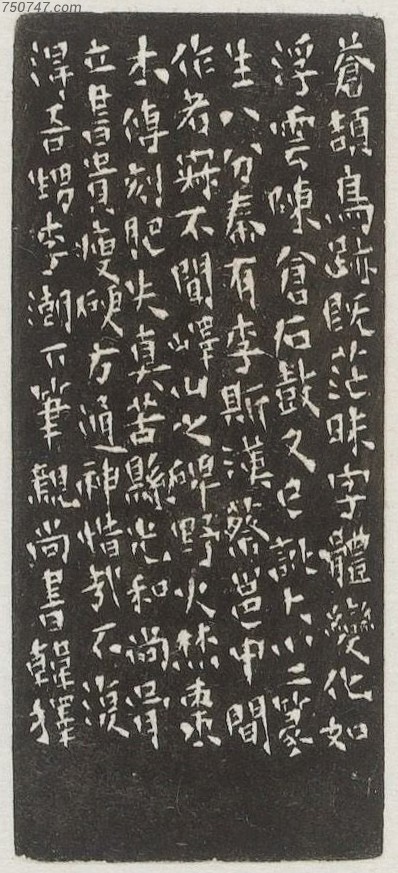 750747.com
蒼頡鳥跡既茫昧字體變化如
浮雲陳倉石鼓又已訛大小二篆
生八分秦有李斯漢蔡邕中間
作者寂不聞嶧山之碑野火焚棗
木傳刻肥失真苦縣光和尚骨
立書貴瘦硬方通神惜哉不復
得吾甥李潮下筆親尚書韓擇